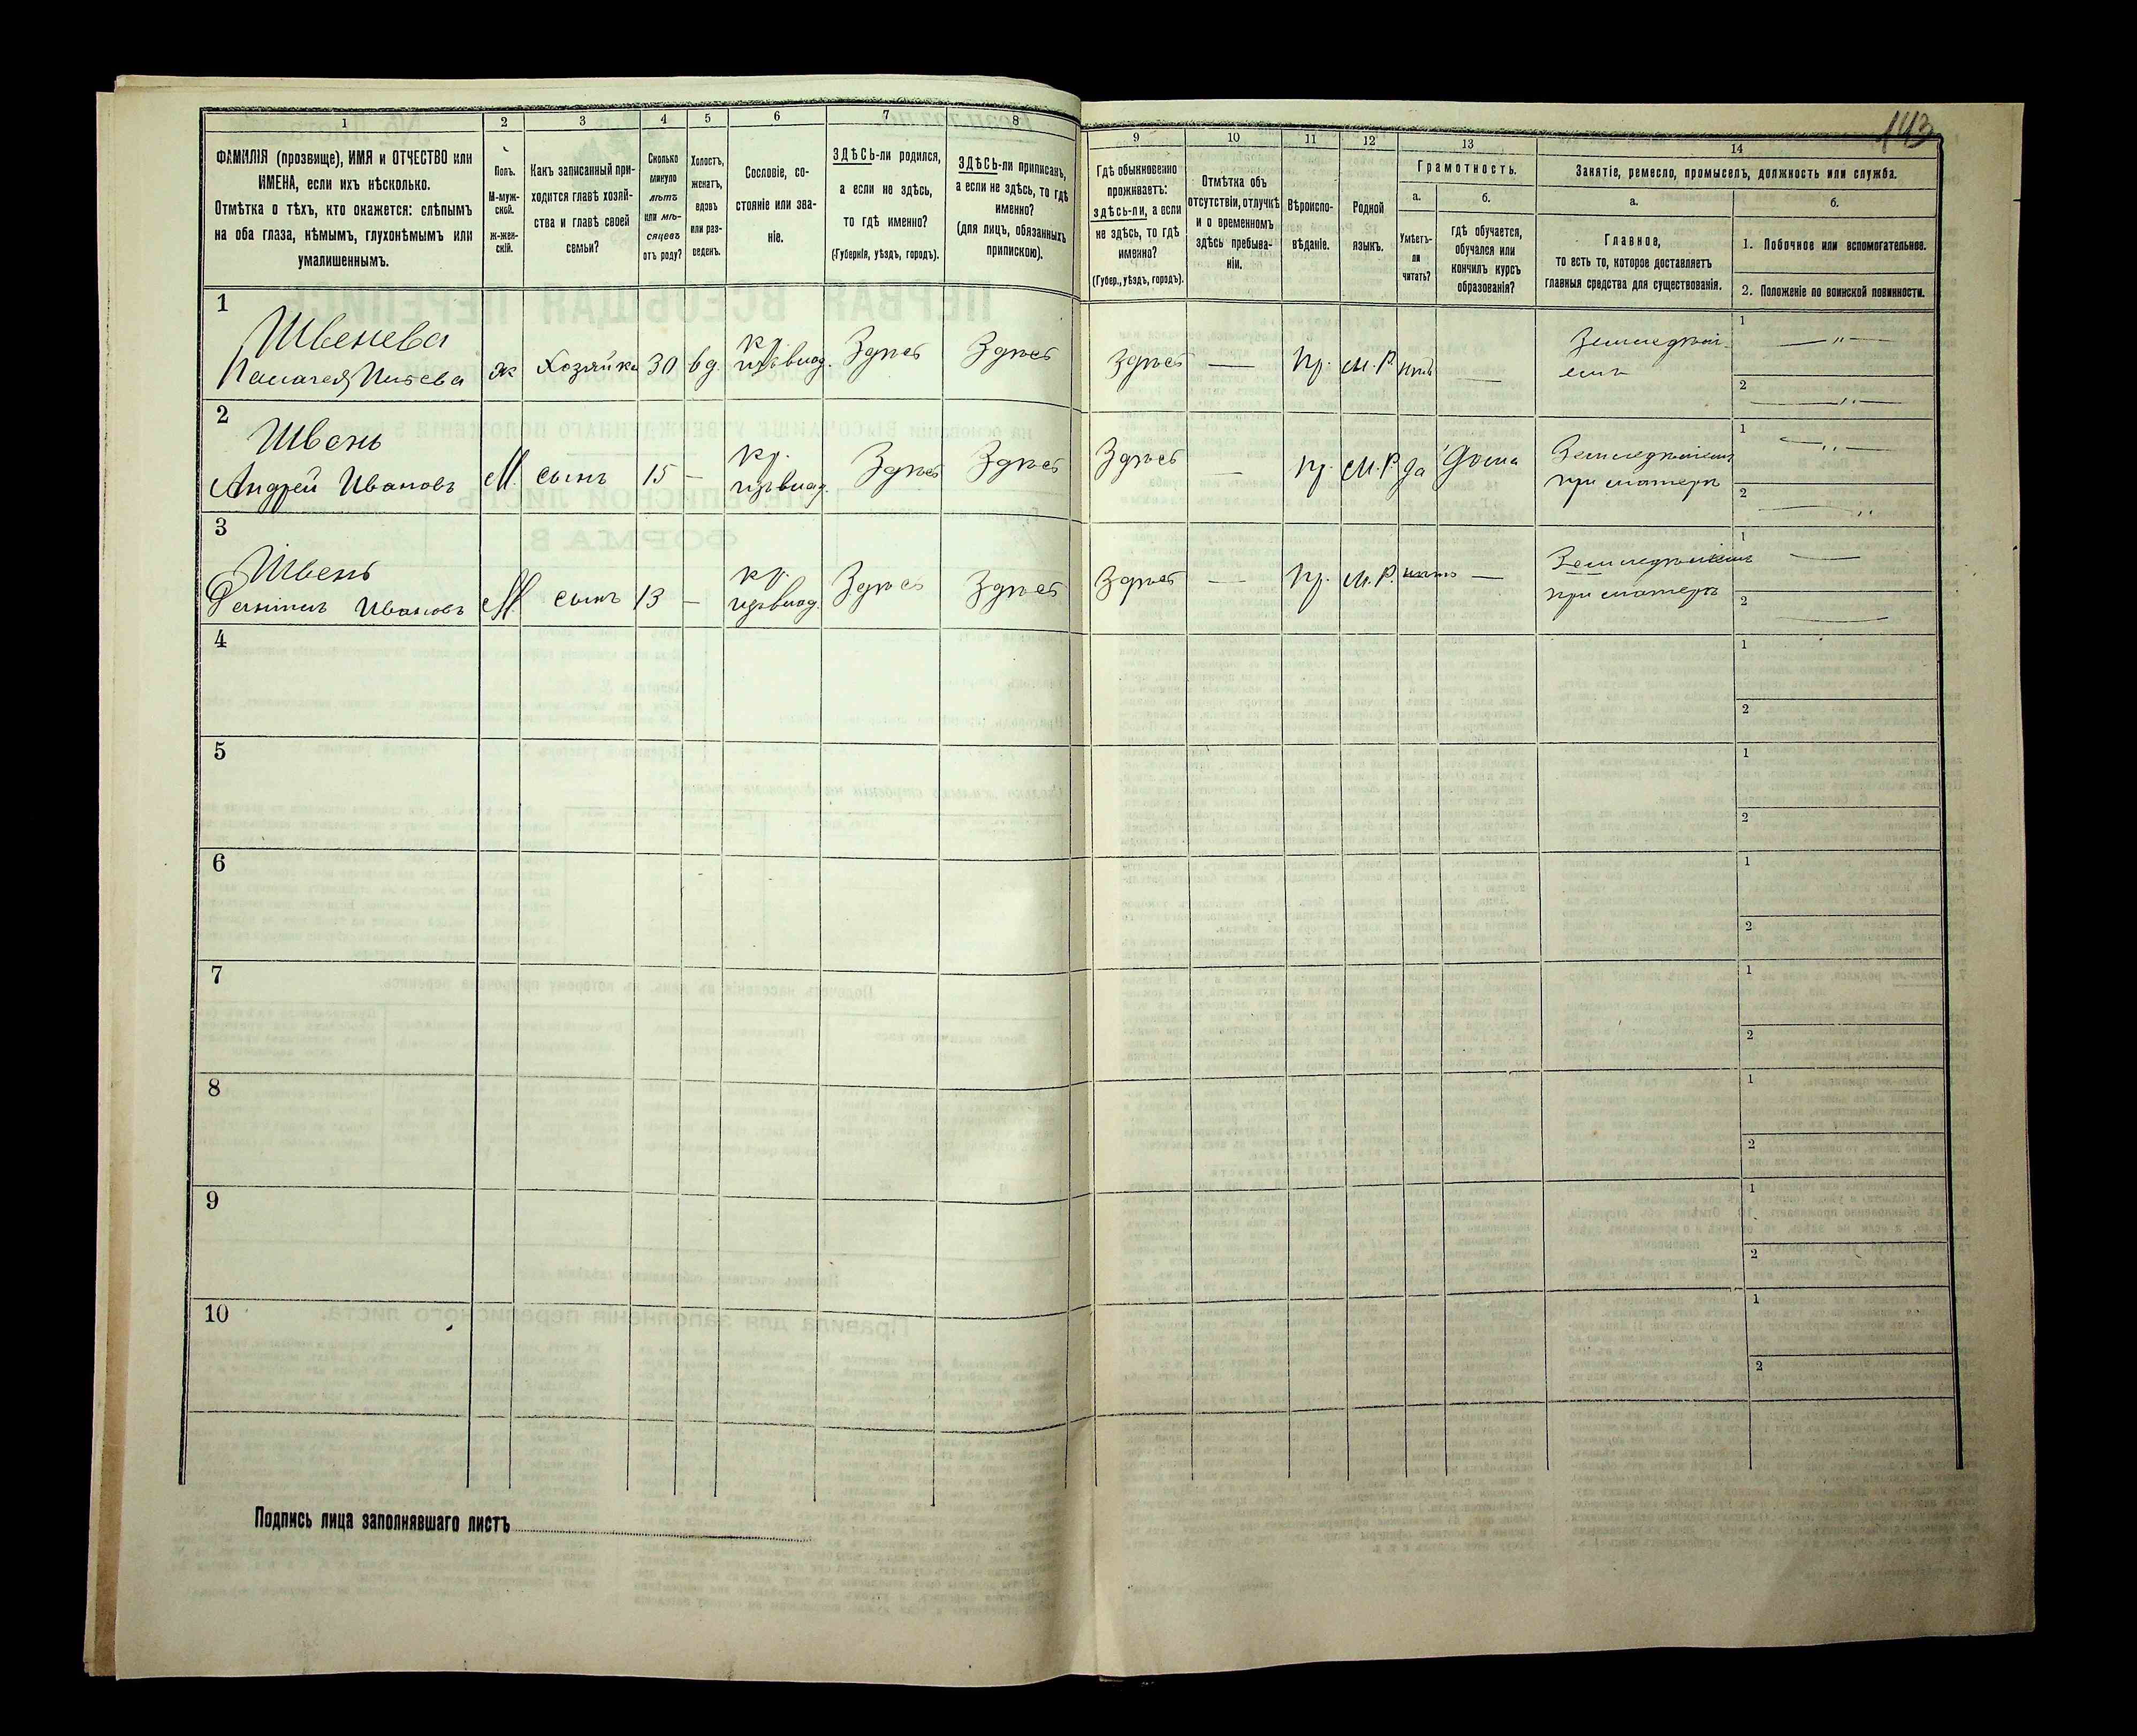 143
1
2
3
4
5
6
7
8
9
10
11
12
13
14
ФАМИЛІЯ (прозвище), ИМЯ и ОТЧЕСТВО или
ИМЕНА, если ихъ нѣсколько.
Отмѣтка о тѣхъ, кто окажется: слѣпымъ
на оба глаза, нѣмымъ, глухонѣмымъ или
умалишеннымъ.
Полъ.
М-муж-
ской.
ж-жен-
скій.
Какъ записанный при-
ходится главѣ хозяй-
ства и главѣ своей
семьи?
Сколько
минуло
лѣтъ
или мѣ-
сяцевъ
отъ роду?
Холостъ,
женатъ,
вдовъ
или раз-
веденъ.
Сословіе, со-
стояніе или зва-
ніе.
ЗДѢСЬ-ли родился,
а если не здѣсь,
то гдѣ именно?
(Губернія, уѣздъ, городъ).
ЗДѢСЬ-ли приписанъ,
а если не здѣсь, то гдѣ
именно?
(для лицъ, обязанныхъ
припискою).
Гдѣ обыкновенно
проживаетъ:
здѣсь-ли, а если
не здѣсь, то гдѣ
именно?
(Губер., уѣздъ, городъ).
Отмѣтка объ
отсутствіи, отлучкѣ
и о временномъ
здѣсь пребыва-
ніи.
Вѣроиспо-
вѣданіе.
Родной
языкъ.
Грамотность.
а.
Умѣетъ-
ли
читать?
б.
гдѣ обучается,
обучался или
кончилъ курсъ
образованія?
Занятіе, ремесло, промыселъ, должность или служба.
а.
Главное,
то есть то, которое доставляетъ
главныя средства для существованія.
б.
1. Побочное или вспомогательное.
2. Положеніе по воинской повинности.
1
Швенева
ж Хозяйка 30 вд. кр. Здѣсь Здѣсь Здѣсь — пр. м.р. нѣтъ —
1 —„—
2 —„—
2
Швень
Андрей Ивановъ М сынъ 15 — кр. Здѣсь Здѣсь Здѣсь — пр. м.р. да дома
при матери
1 —„—
2 —„
3
Швень
Ивановъ М сынъ 13 — кр. Здѣсь Здѣсь Здѣсь — пр. м.р. нѣтъ —
при матери
1 —
2 —
4
1
2
5
1
2
6
1
2
7
1
2
8
1
2
9
1
2
10
1
2
Подпись лица заполнявшаго листъ